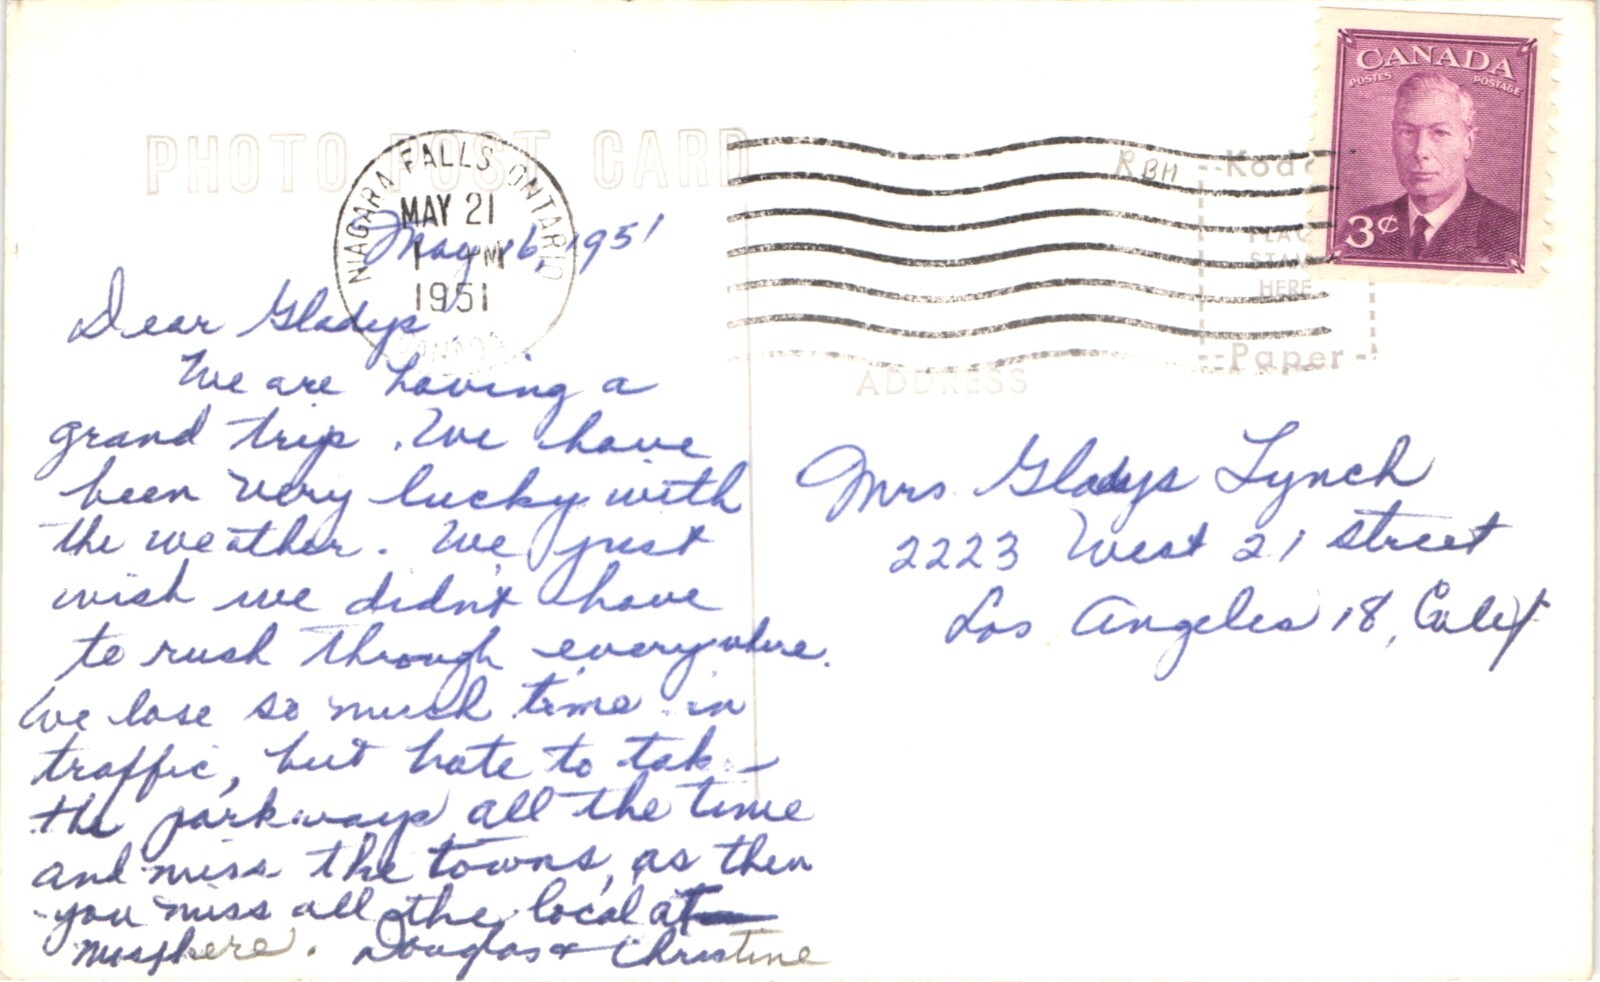 PHOTO POST CARD
NIAGARA FALLS ONTARIO
MAY 21
1 PM
1951
CANADA
CANADA
POSTES POSTAGE
3¢
RBH
Kod
PLAC
STAM
HERE
Paper
ADDRESS
May 16, 1951
Dear Gladys
We are having a
grand trip. We have
been very lucky with
the weather. We just
wish we didn't have
to rush through everywhere.
We lose so much time in
traffic, but hate to take
the parkways all the time
and miss the towns, as then
you miss all the local at-
mosphere. Douglas & Christine
Mrs Gladys Lynch
2223 West 21 street
Los Angeles 18, Calif